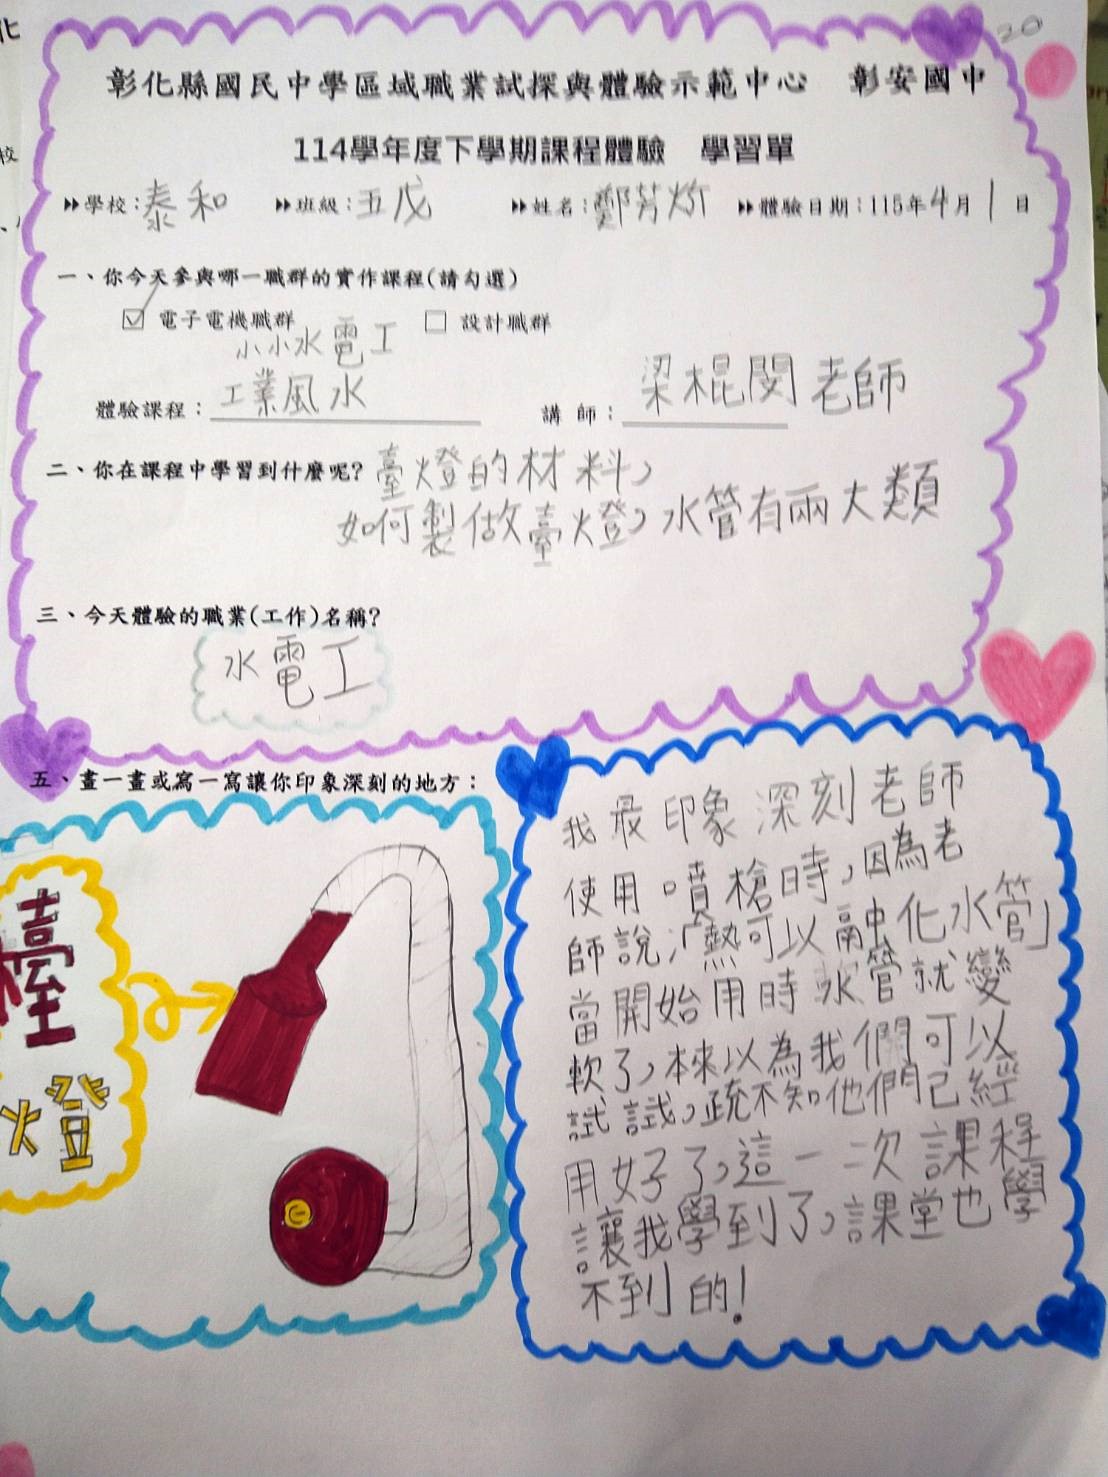 20
彰化縣國民中學區域職業試探與體驗示範中心 彰安國中
114學年度下學期課程體驗 學習單
學校:泰和 班級:五戊 姓名:鄭芳 體驗日期:115年4月1日
一、你今天參與哪一職群的實作課程(請勾選)
☑ 電子電機職群 □ 設計職群
小小水電工
體驗課程:工業風水 講師:梁棍閔老師
二、你在課程中學習到什麼呢?臺燈的材料,
如何製做臺燈,水管有兩大類
三、今天體驗的職業(工作)名稱?
水電工
五、畫一畫或寫一寫讓你印象深刻的地方:
臺
燈
我最印象深刻老師
使用噴槍時,因為老
師說:「熱可以融化水管」
當開始用時水管就變
軟了,本來以為我們可以
試試,疏不知他們已經
用好了,這一次課程
讓我學到了,課堂也學
不到的!
化
校